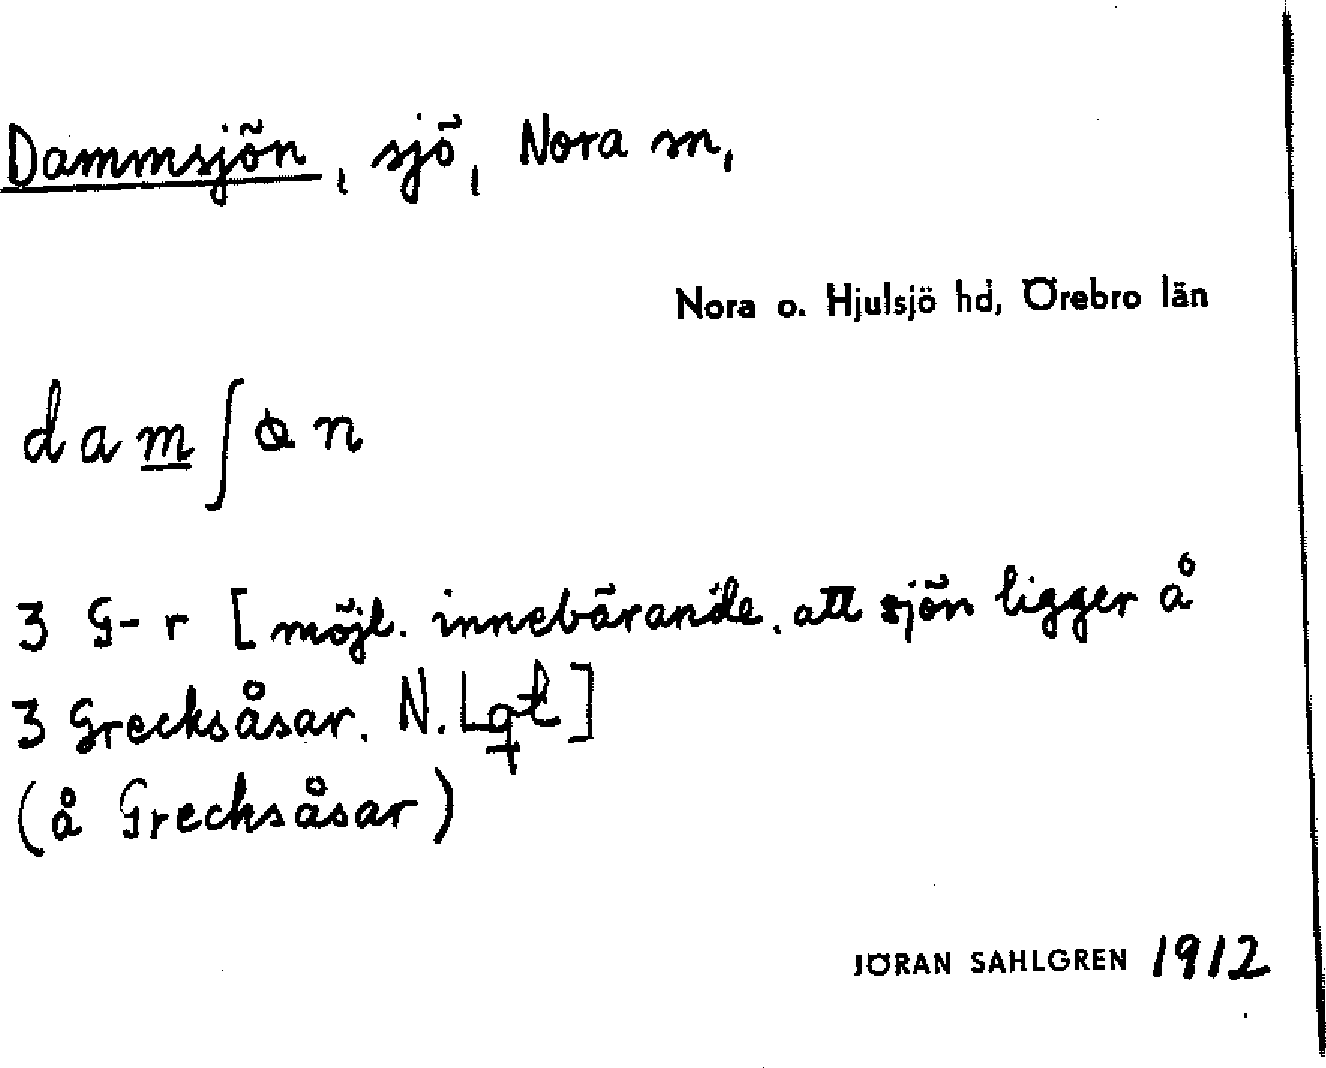 Dammsjön, sjö, Nora sn,
Nora o. Hjulsjö hd, Örebro län
3 G-r [möjl. innebärande, att sjön ligger å
3 Grecksåsar. N.
(å Grecksåsar)
JÖRAN SAHLGREN 1912